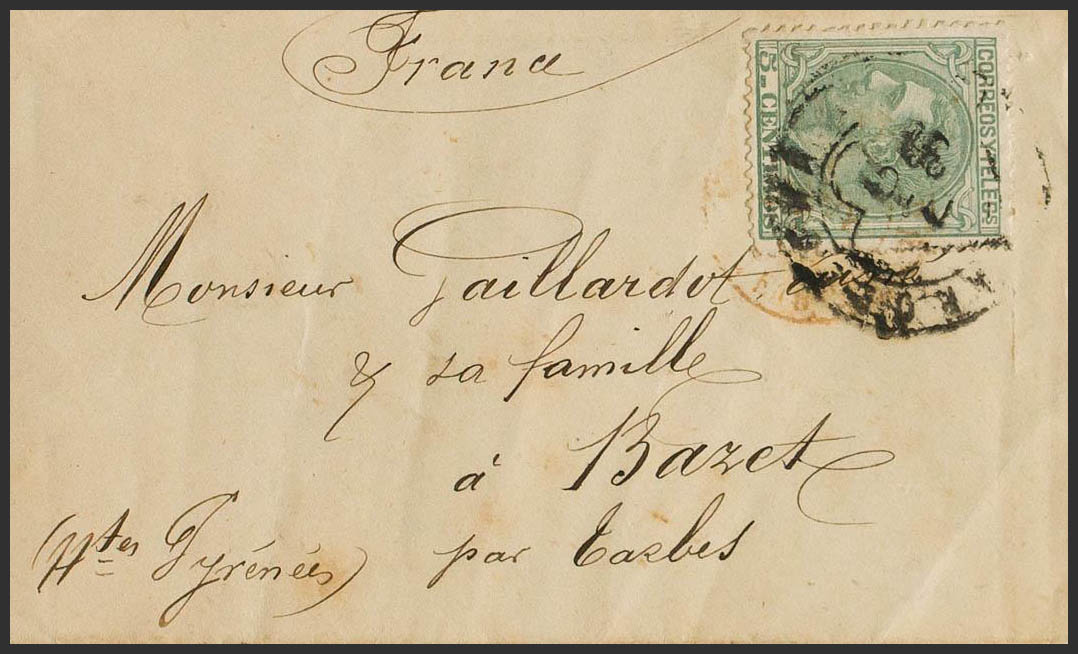 France
CORREOS Y TELEGS
5. CENTIMOS
Monsieur Gaillardot
& sa famille
à Bazet
par Tarbes
(Htes Pyrénées)